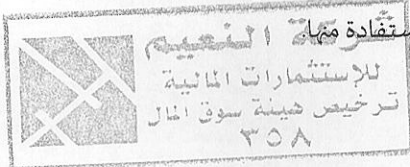 ستفادة منها.
شركة النعيم
للإستثمارات المالية
ترخيص هيئة سوق المال
٣٥٨